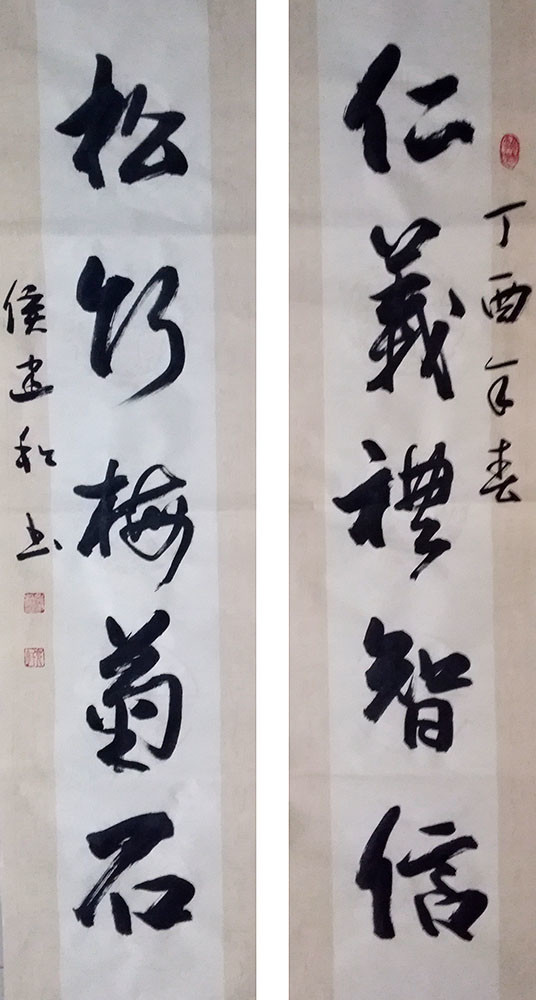 丁酉年春
仁義禮智信
松竹梅菊石
侯建和书